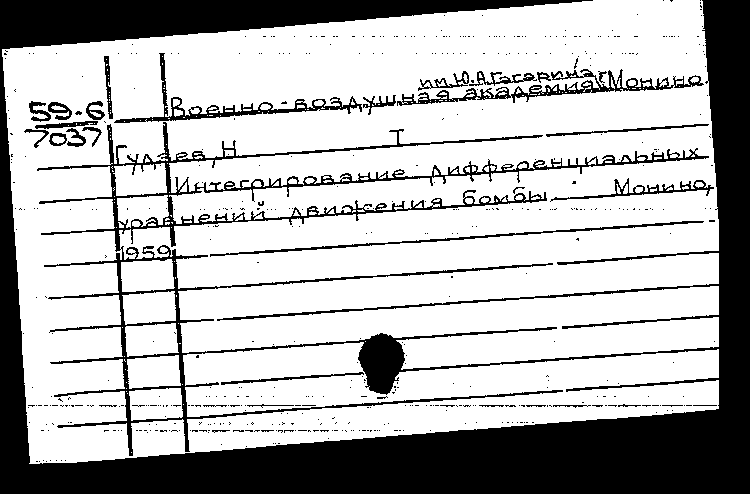 59-6
7037
им. Ю.А.Гагарина
Военно-воздушная академия, Монино.
Гудзев, Н I
Интегрирование дифференциальных
уравнений движения бомбы. Монино,
1959.